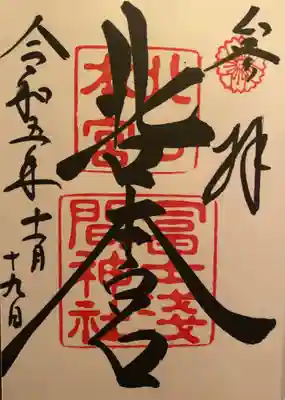 参拝
北口本宮
令和五年十一月
十九日
北口
本宮
冨士淺
間神社